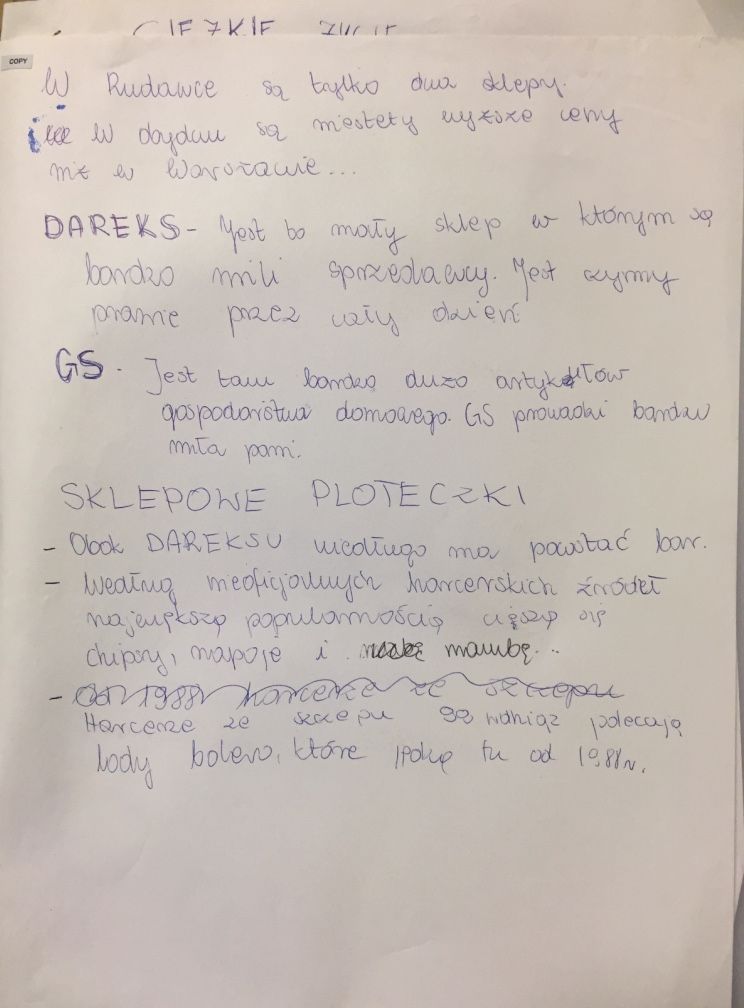 CIĘŻKIE ŻYCIE
COPY
W Rudawce są tylko dwa sklepy.
W obydwu są niestety wyższe ceny
niż w Warszawie...
DAREKS - Jest to mały sklep w którym są
bardzo mili sprzedawcy. Jest czynny
prawie przez cały dzień
GS. Jest tam bardzo dużo artykułów
gospodarstwa domowego. GS prowadzi bardzo
miła pani.
SKLEPOWE PLOTECZKI
- Obok DAREKSU niedługo ma powstać bar.
- Według nieoficjalnych harcerskich źródeł
największą popularnością cieszą się
chipsy, napoje i mambę...
- Od 1988 harcerze ze szczepu
Harcerze ze szczepu polecają
lody bolero, które są tu od 1988r.